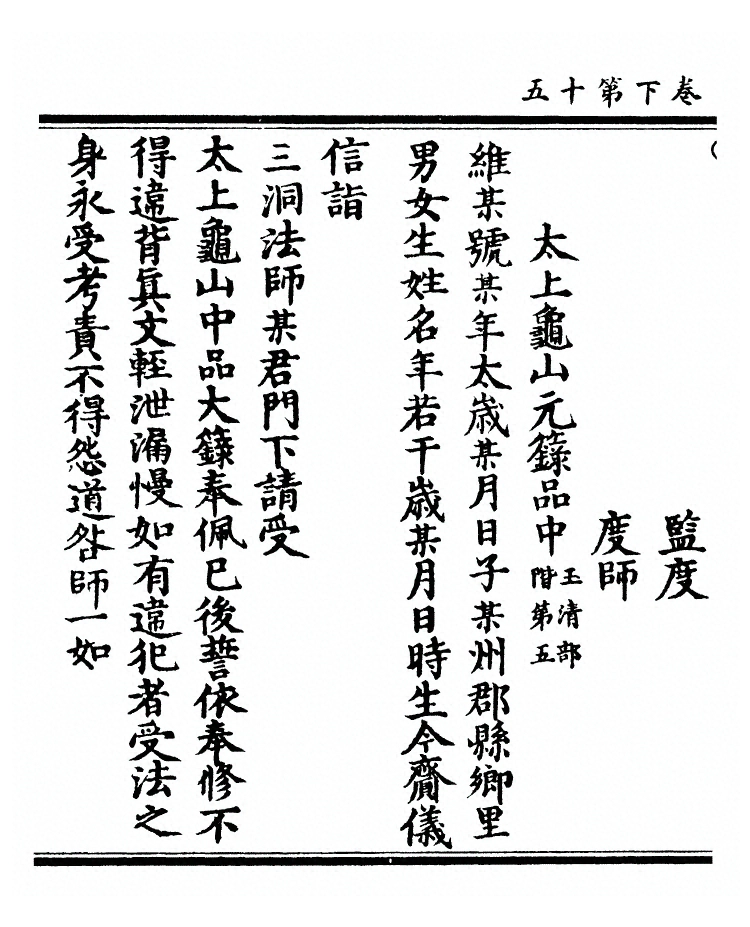 卷下第十五
監度
度師
太上龜山元籙品中玉清部階第五
維某號某年太歲某月日子某州郡縣鄉里
男女生姓名年若干歲某月日時生今齎儀
信詣
三洞法師某君門下請受
太上龜山中品大籙奉佩已後誓依奉修不
得違背真文輕泄漏慢如有違犯者受法之
身永受考責不得怨道咎師一如